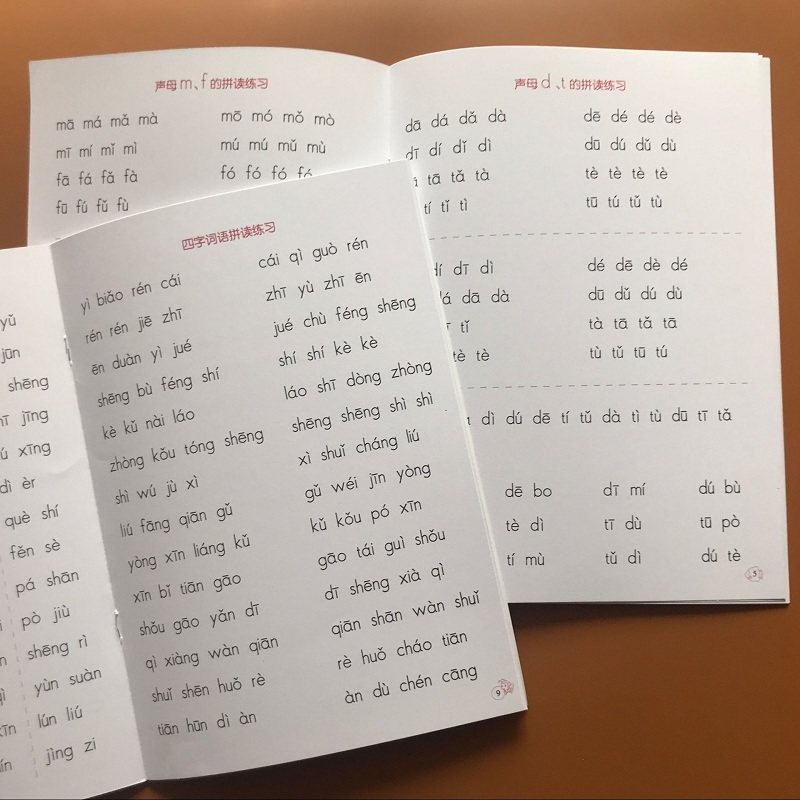 声母 m、f 的拼读练习
mā má mǎ mà mō mó mǒ mò
mī mí mǐ mì mú mú mǔ mù
fā fá fǎ fà fó fó fó fó
fū fú fǔ fù
声母 d、t 的拼读练习
dā dá dǎ dà dē dé dé dè
dī dí dǐ dì dū dú dǔ dù
tā tǎ tà tè tè tè tè
tí tǐ tì tū tú tǔ tù
dí dī dì dé dē dè dé
dá dā dà dū dǔ dú dù
tǐ tà tā tǎ tā
tè tè tù tǔ tū tú
dì dú dē tí tǔ dà tì tù dū tī tǎ
dē bo dī mí dú bù
tè dì tī dù tū pò
tí mù tǔ dì dú tè
5
四字词语拼读练习
yì biǎo rén cái cái qì guò rén
rén rén jiē zhī zhī yù zhī ēn
ēn duàn yì jué jué chù féng shēng
shēng bù féng shí shí shí kè kè
kè kǔ nài láo láo shī dòng zhòng
zhòng kǒu tóng shēng shēng shēng shì shì
shì wú jù xì xì shuǐ cháng liú
liú fāng qiān gǔ gǔ wéi jīn yòng
yòng xīn liáng kǔ kǔ kǒu pó xīn
xīn bǐ tiān gāo gāo tái guì shǒu
shǒu gāo yǎn dī dī shēng xià qì
qì xiàng wàn qiān qiān shān wàn shuǐ
shuǐ shēn huǒ rè rè huǒ cháo tiān
tiān hūn dì àn àn dù chén cāng
9
yǔ
jūn
shēng
jīng
xīng
dì èr
què shí
fěn sè
pá shān
pò jiù
shēng rì
yùn suàn
lún liú
jìng zi